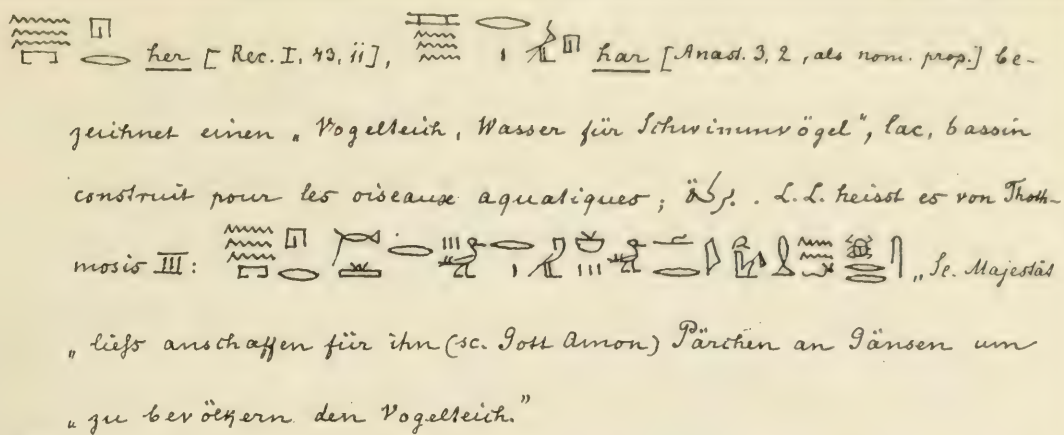 her [Rec. I, 43, ii], har [Anast. 3, 2, als nom. prop.] be-
zeichnet einen „Vogelteich, Wasser für Schwimmvögel", lac, bassin
construit pour les oiseaux aquatiques; بركة. L.L. heisst es von Thoth-
mosis III: „Se. Majestät
„liefs anschaffen für ihn (sc. Gott Amon) Pärchen an Gänsen um
„zu bevölkern den Vogelteich."